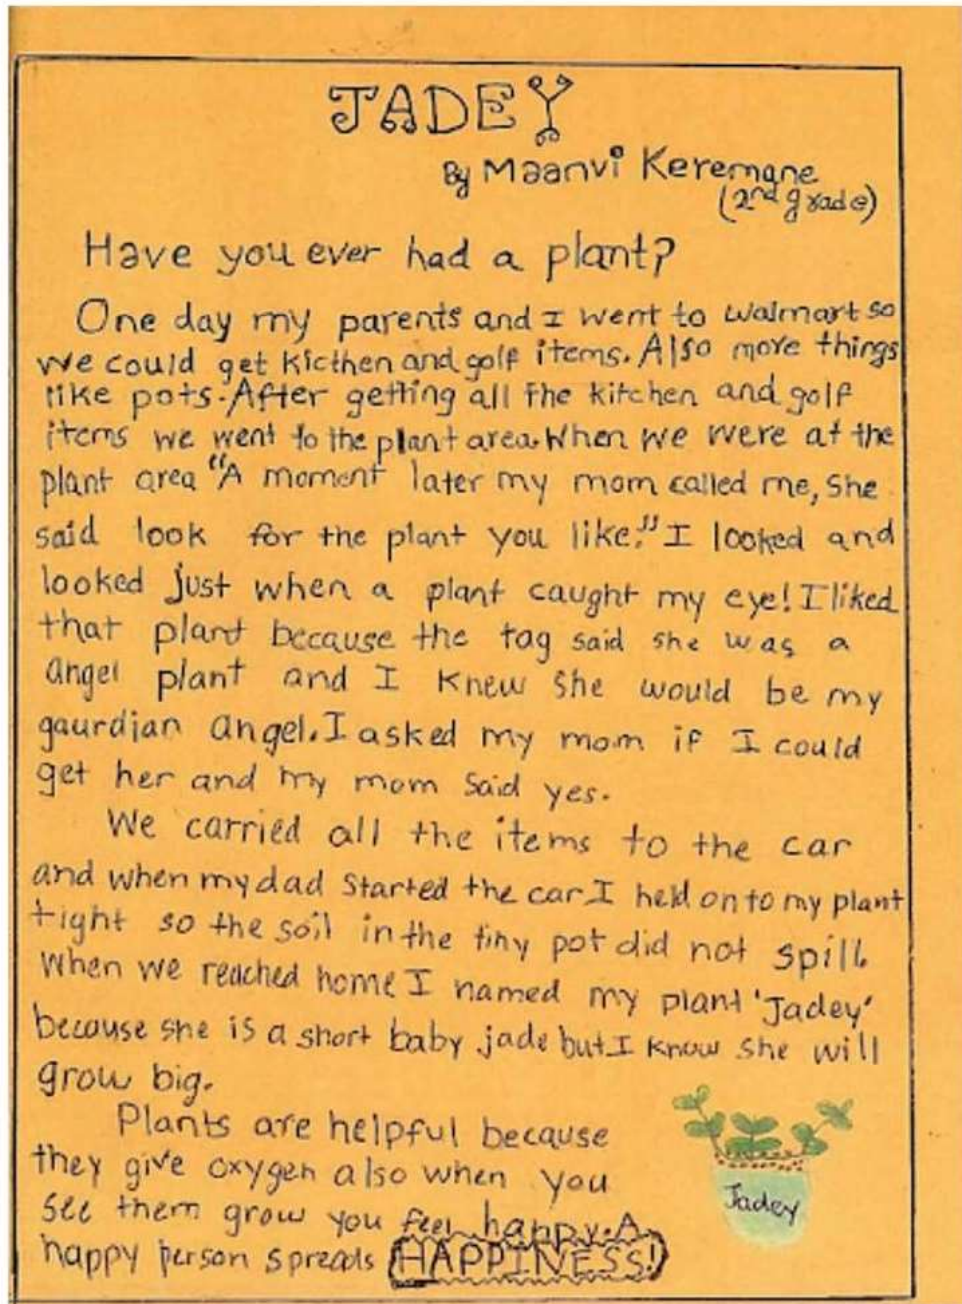 JADEY
By Maanvi Keremane
(2nd grade)
Have you ever had a plant?
One day my parents and I went to walmart so
we could get kicthen and golf items. Also more things
like pots. After getting all the kitchen and golf
items we went to the plant area. When we were at the
plant area "A moment later my mom called me, she
said look for the plant you like." I looked and
looked just when a plant caught my eye! I liked
that plant because the tag said she was a
angel plant and I knew she would be my
gaurdian angel. I asked my mom if I could
get her and my mom said yes.
We carried all the items to the car
and when my dad started the car I held on to my plant
tight so the soil in the tiny pot did not spill.
When we reached home I named my plant 'Jadey'
because she is a short baby jade but I know she will
grow big.
Plants are helpful because
they give oxygen also when you
see them grow you feel happy. A
happy person spreads HAPPINESS!
Jadey